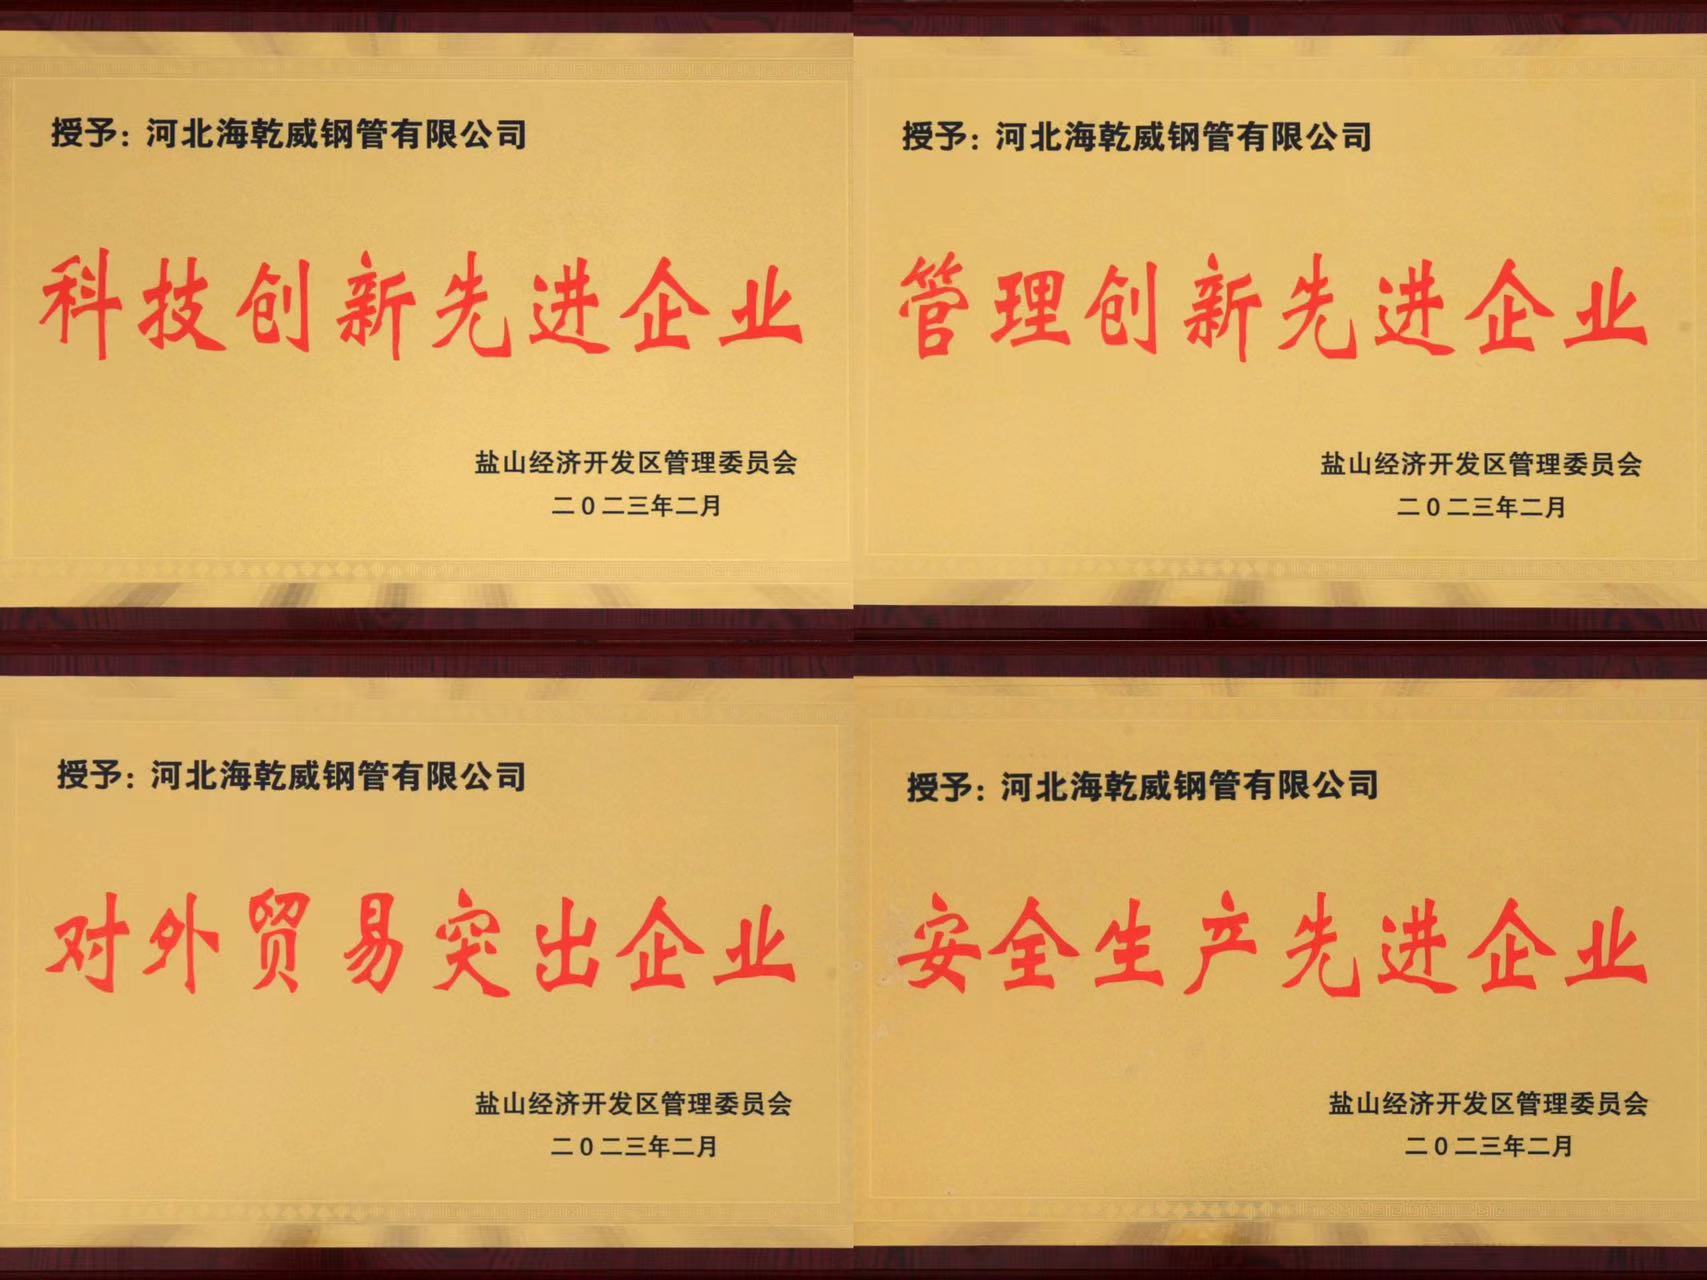 授予：河北海乾威钢管有限公司
科技创新先进企业
盐山经济开发区管理委员会
二0二三年二月
授予：河北海乾威钢管有限公司
管理创新先进企业
盐山经济开发区管理委员会
二0二三年二月
授予：河北海乾威钢管有限公司
对外贸易突出企业
盐山经济开发区管理委员会
二0二三年二月
授予：河北海乾威钢管有限公司
安全生产先进企业
盐山经济开发区管理委员会
二0二三年二月